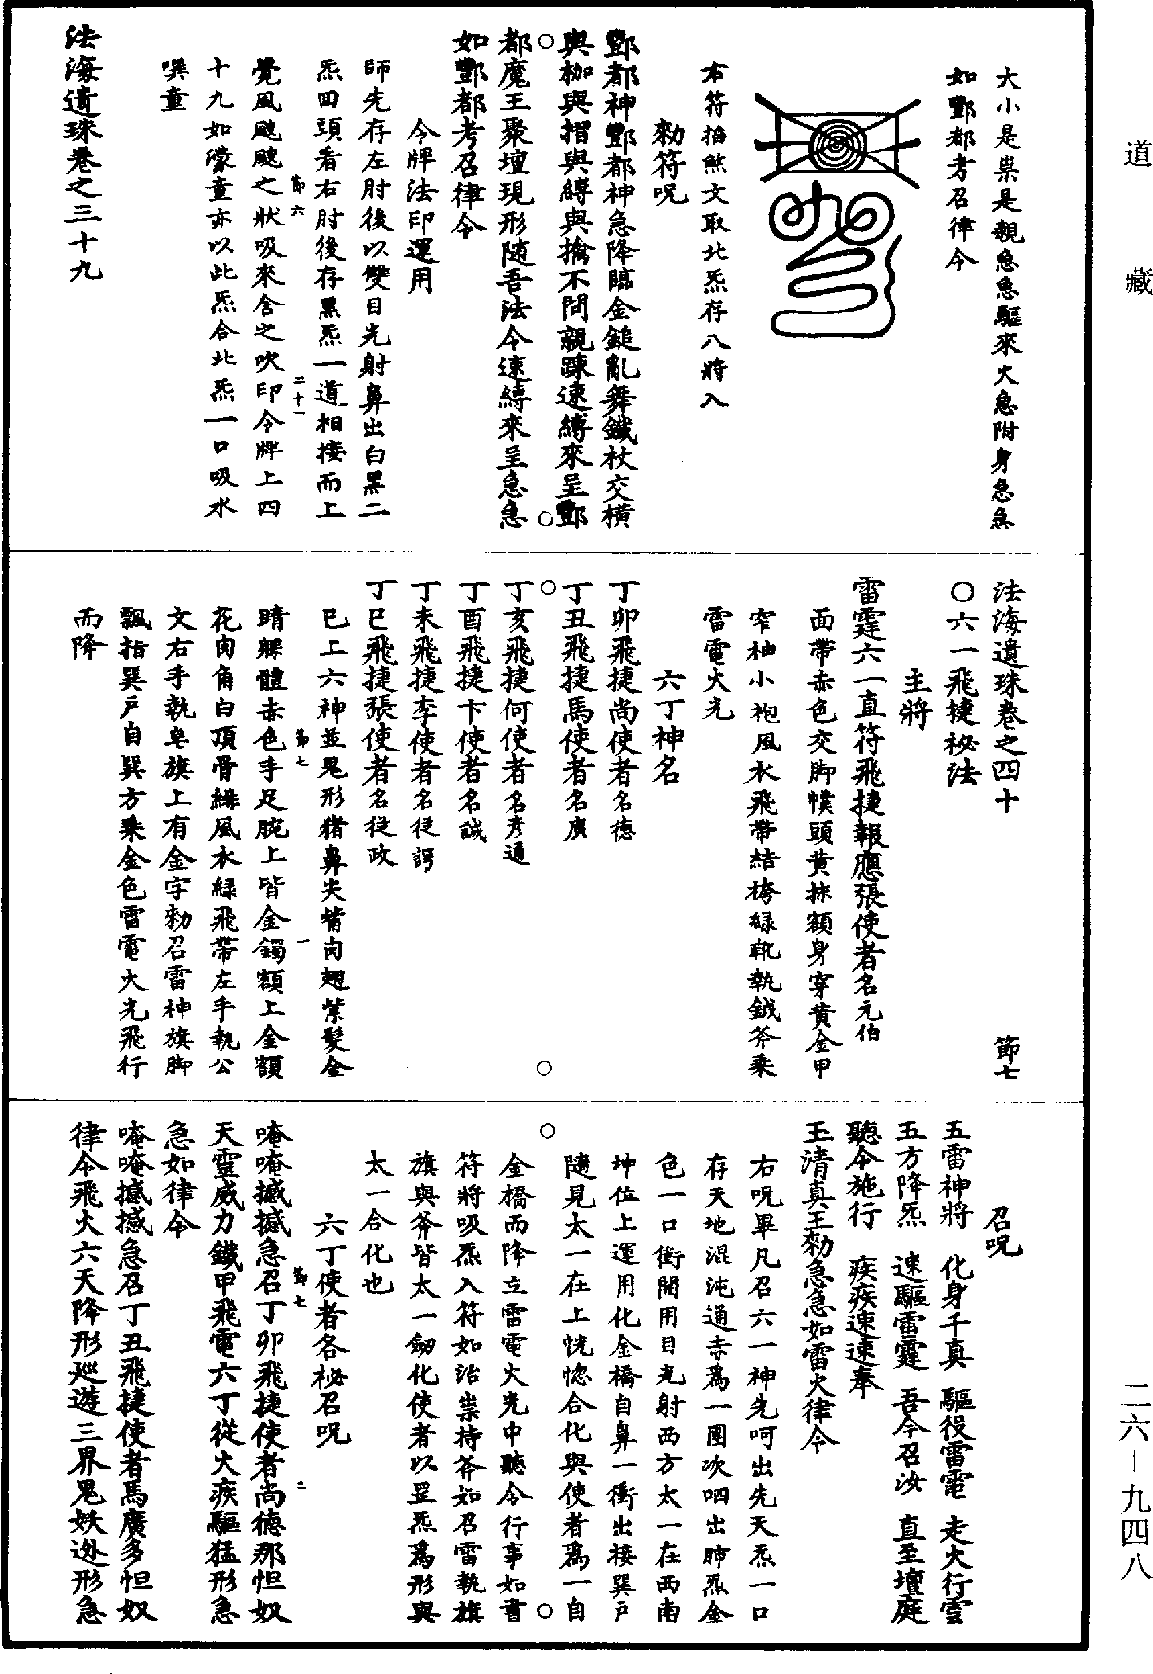 道藏
大小是祟是親急急驅來火急附身急急
如酆都考召律令
右符掐煞文取北炁存八將入
勑符呪
酆都神酆都神急降臨金鎚亂舞鐵杖交橫
與枷與摺與縛與擒不問親踈速縛來呈酆
都魔王聚壇現形隨吾法令速縛來呈急急
如酆都考召律令
令牌法印運用
師先存左肘後以雙目光射鼻出白黑二
炁回頭看右肘後存黑炁一道相接而上
節六
二十一
覺風颼颼之狀吸來含之吹印令牌上四
十九如濛童亦以此炁合北炁一口吸水
噀童
法海遺珠卷之三十九
法海遺珠卷之四十
節七
〇六一飛捷祕法
主將
雷霆六一直符飛捷報應張使者名元伯
面帶赤色交脚幞頭黄抹額身穿黄金甲
窄袖小袍風水飛帶結袴綠靴執鉞斧乘
雷電火光
六丁神名
丁卯飛捷尚使者名德
丁丑飛捷馬使者名廣
丁亥飛捷何使者名彥通
丁酉飛捷卞使者名誠
丁未飛捷李使者名從諤
丁巳飛捷張使者名從政
已上六神並鬼形猪鼻尖觜肉翅紫髮金
節七
一
睛躶體赤色手足腕上皆金鐲額上金額
花肉角白頂骨綠風水綠飛帶左手執公
文右手執皂旗上有金字勑召雷神旗脚
飄指巽戶自巽方乘金色雷電火光飛行
而降
召呪
五雷神將　化身千真　驅役雷電　走火行雲
五方降炁　速驅雷霆　吾今召汝　直至壇庭
聽令施行　疾疾速速奉
玉清真王勑急急如雷火律令
右呪畢凡召六一神先呵出先天炁一口
存天地混沌通赤爲一團次呬出肺炁金
色一口衝開用目光射西方太一在西南
坤位上運用化金橋自鼻一衝出接巽戶
隨見太一在上恍惚合化與使者爲一自
金橋而降立雷電火光中聽令行事如書
符將吸炁入符如治祟持斧如召雷執旗
旗與斧皆太一劒化使者以罡炁爲形與
太一合化也
六丁使者各祕召呪
唵唵撼撼急召丁卯飛捷使者尚德那怛奴
節七
二
天靈威力鐵甲飛電六丁從火疾驅猛形急
急如律令
唵唵撼撼急召丁丑飛捷使者馬廣多怛奴
律令飛火六天降形巡遊三界鬼妖迯形急
二六－九四八